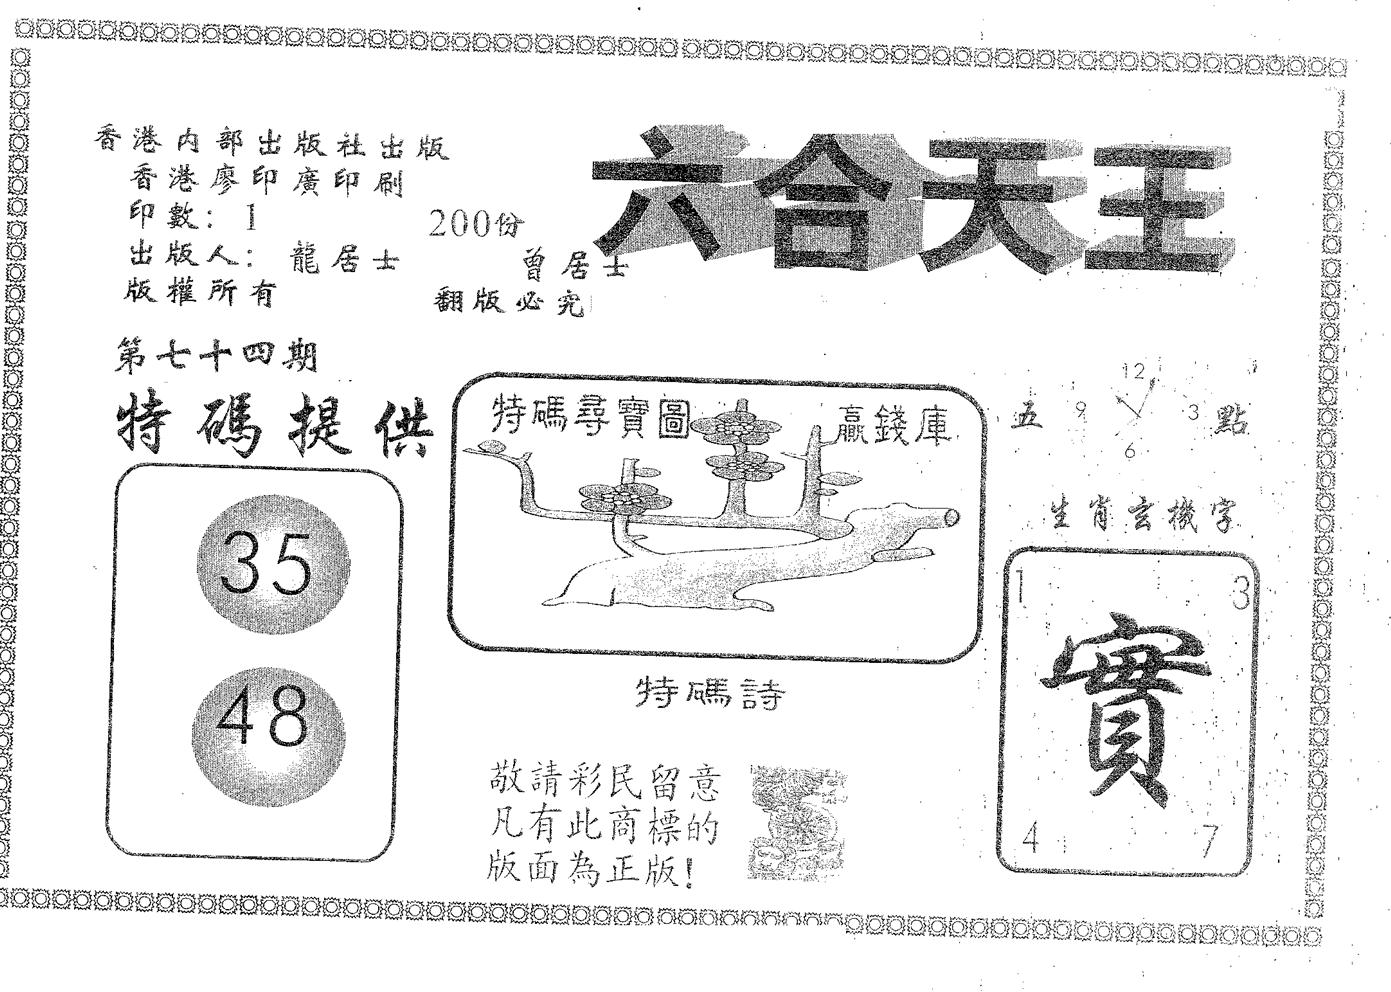 香港内部出版社出版
香港廖印廣印刷
印數：1 200份
出版人：龍居士 曾居士
版權所有 翻版必究
六合天王
第七十四期
特碼提供
35
48
特碼尋寶圖 贏錢庫
特碼詩
敬請彩民留意
凡有此商標的
版面為正版！
五 點
12
9 3
6
生肖玄機字
1 3
實
4 7